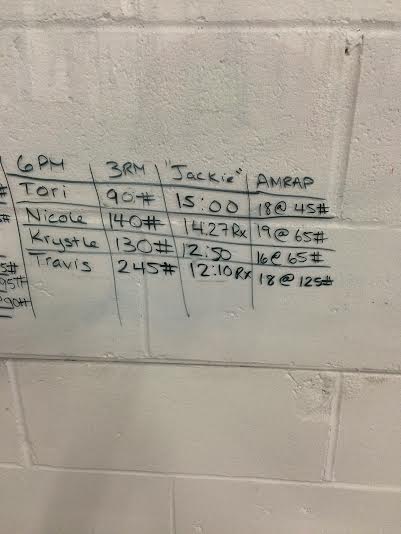 6PM 3RM "Jackie" AMRAP
Tori 90# 15:00 18@45#
Nicole 140# 14:27Rx 19@65#
Krystle 130# 12:50 16@65#
Travis 245# 12:10Rx 18@125#
5#
95#
90#